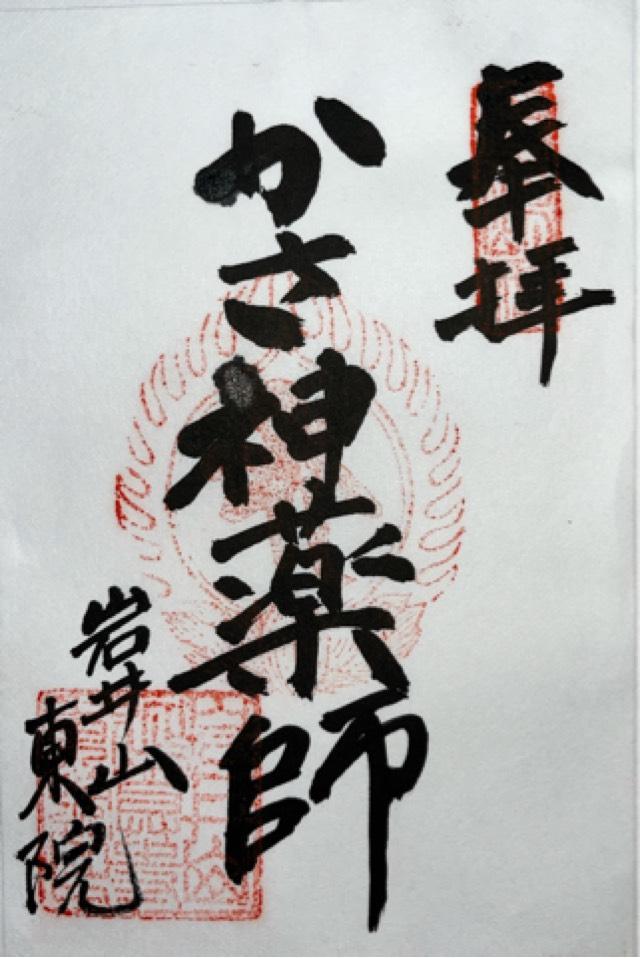 奉拝
かさ神薬師
岩井山
東院